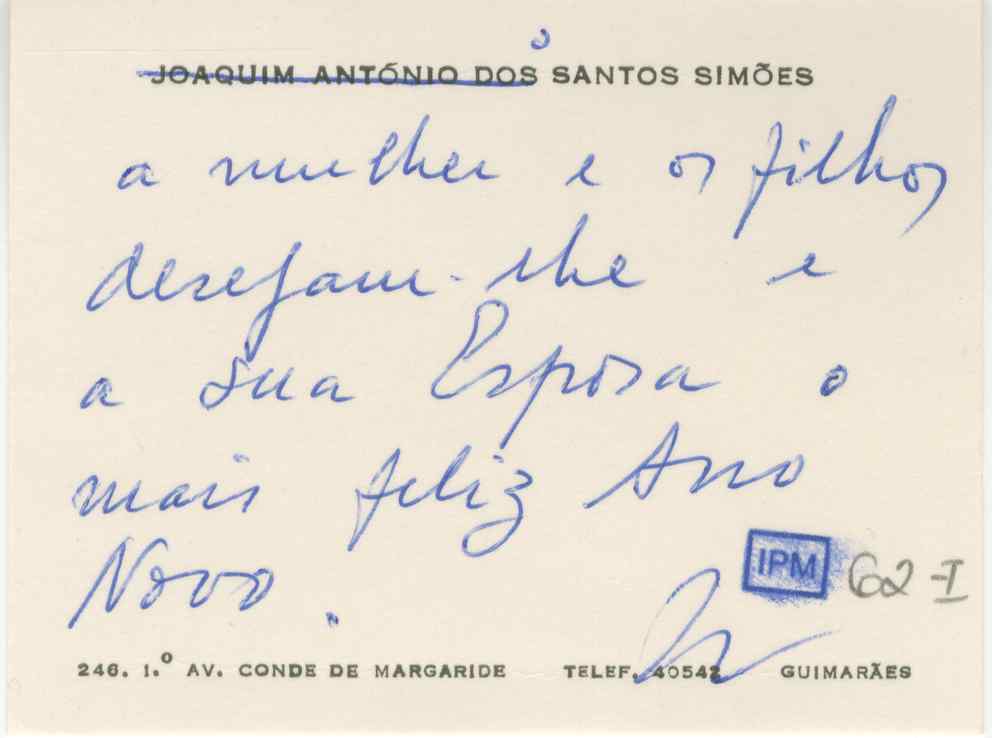 o
JOAQUIM ANTÓNIO DOS SANTOS SIMÕES
a mulher e os filhos
desejam-lhe e
a Sua Esposa o
mais feliz Ano
Novo.
IPM 62-I
246. 1.º AV. CONDE DE MARGARIDE TELEF. 40542 GUIMARÃES